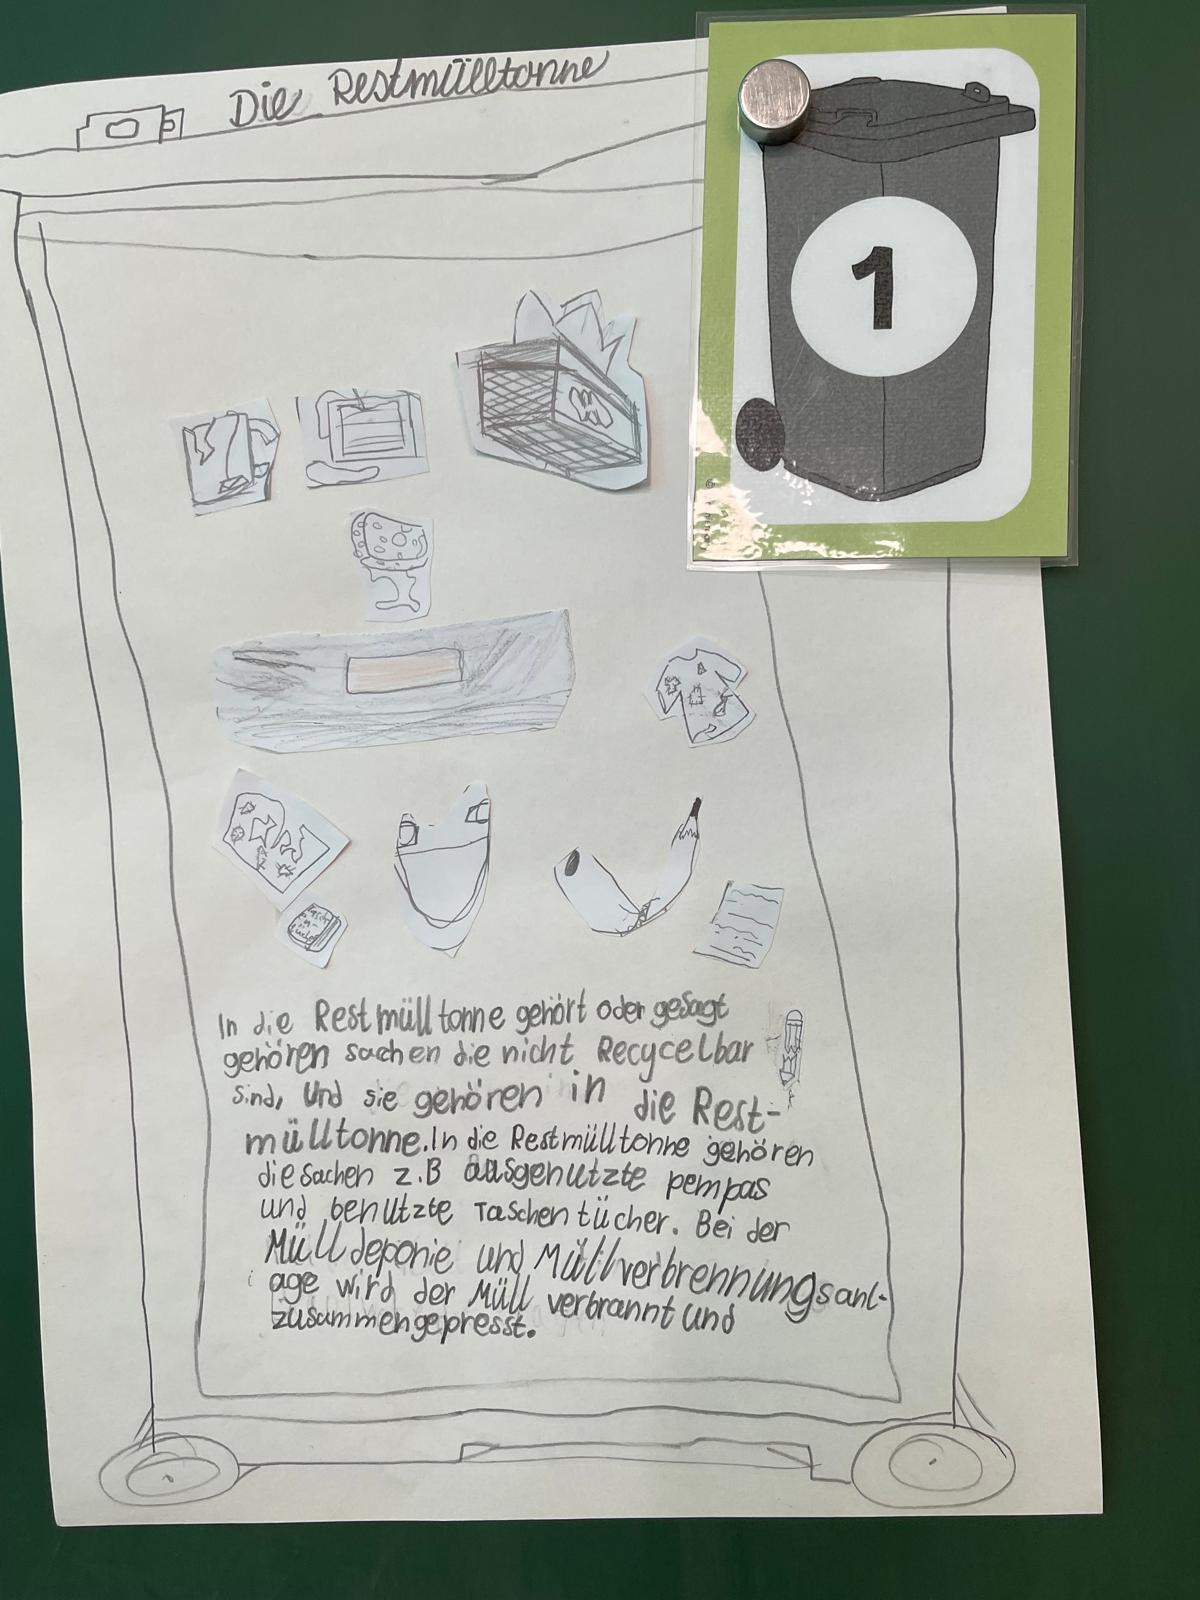 Die Restmülltonne
1
In die Restmülltonne gehört oder gesagt
gehören sachen die nicht Recycelbar
sind, und sie gehören in die Rest-
mülltonne. In die Restmülltonne gehören
die sachen z.B ausgenutzte pempas
und benutzte Taschentücher. Bei der
Mülldeponie und Müllverbrennungsanl-
age wird der Müll verbrannt und
zusammengepresst.